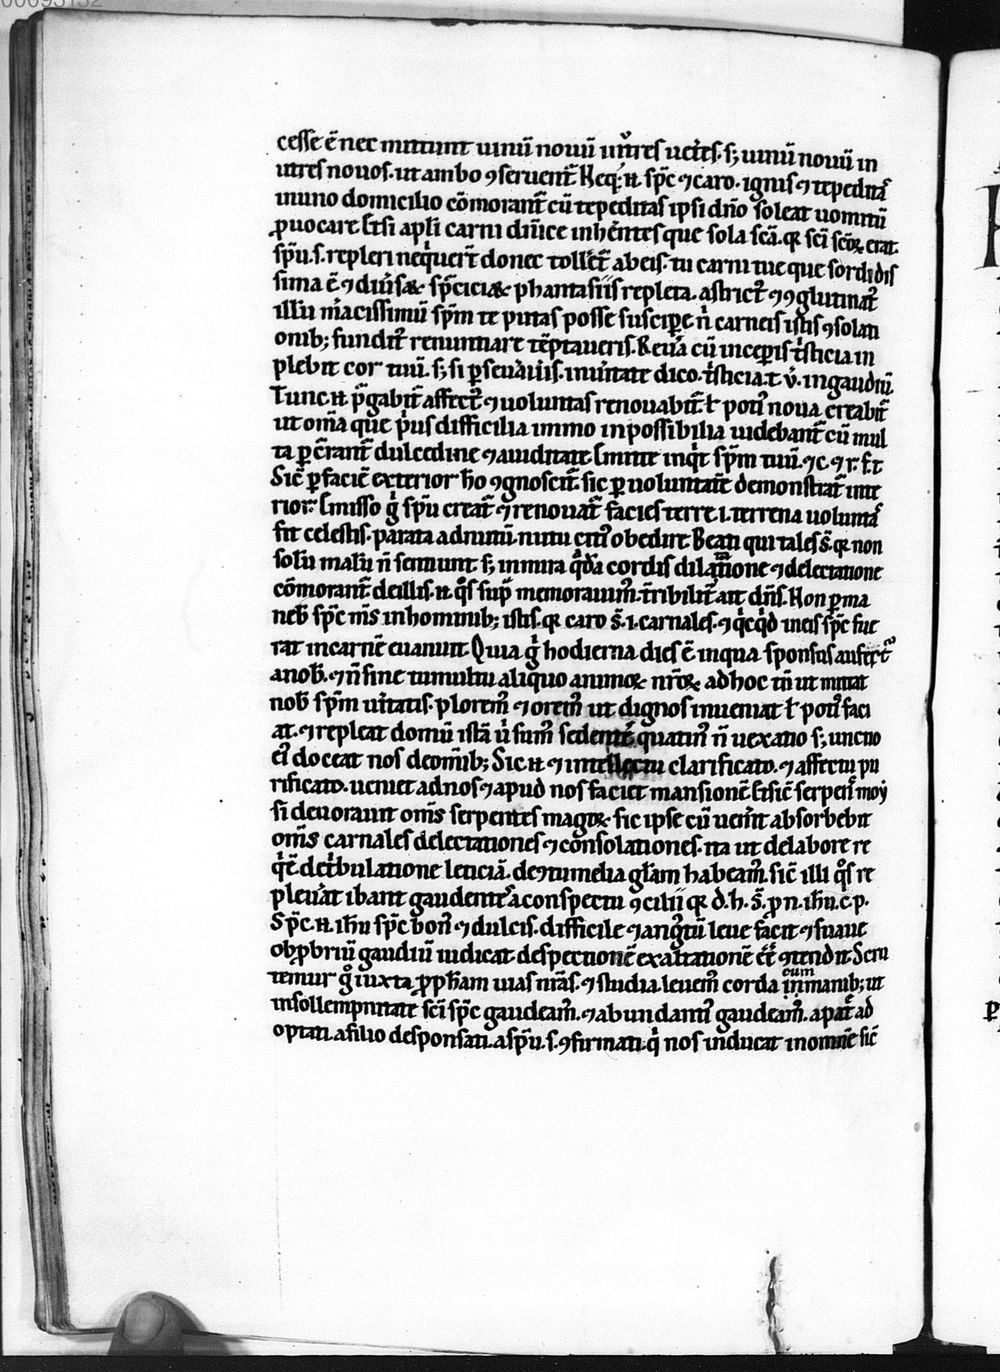 cesse ē nec mittunt uinū nouū in utres uet̄es. s; uinū nouū in
utres nouos. ut ambo ꝯseruent̄. Neq; n̄. sp̄c ⁊ caro. ignis ⁊ tepeditas
in uno domicilio cōmorant̄ cū tepeditas ipsi dn̄o soleat uomitū
ꝓuocare. Et si apl̓i carni dn̄ice inhērentes que sola sc̄a. ꝙ sc̄i sc̄oꝝ erat.
sp̄u. s. repleri nequier̄t donec tolleret̄ ab eis. tu carni tue que sordidis
sima ē ⁊ diuersaꝝ sp̄cieꝝ phantasiis repleta. astrict᷒ ⁊ ꝯglutinat᷒
illū m̄acissimū sp̄m te putas posse suscipe n̄ carneis istis ꝯsolati
onib; funditꝰ renuntiare tēptaueris. Reuera cū inceperis t̄sticia in
plebit cor tuū. s; si ꝑseuaueris. in ueritate dico. t̄sticia. t. v̄. in gaudiū.
Tunc n̄ p̄gabit̄ affectꝰ ⁊ uoluntas renouabit̄. ł potiꝰ noua creabit̄
ut om̄ia que prius difficilia immo inpossibilia uidebant̄ cū mul
ta ꝑcurrant̄ dulcedine ⁊ auiditate. Emitte inqͥt sp̄m tuū. ⁊ c. ⁊ r. f. t
Sic̄ ꝑ faciē exterior hō ꝯgnoscit̄ sic ꝑ uoluntatē demonstrat̄ inte
rior. Emisso gͦ sp̄u creat̄ ⁊ renouat̄ facies terre. i. terrena uoluntas
fit celestis. parata ad nutū. nutu citiꝰ obedire. Beati qui tales s̄. ꝙ non
solū malū n̄ sentiunt s; in mira qͣdā cordis dilatione ⁊ delectatione
cōmorant̄. de illis. n̄ qͦs sup̄ memorauim̄. t̄ribilit̄ ait dn̄s. Non ꝑma
neb̄ sp̄c m̄s in hominib; istis. ꝙ caro s̄. i. carnales. ⁊ qͥcqͥd in eis sp̄c fue
rat in carnē euanuit. Quia gͦ hodierna dies ē in qua sponsus aufert̄
a nob̄. ⁊ n̄ sine tumultu aliquo animoꝝ nr̄oꝝ. ad hoc tn̄ ut mittat
nob̄ sp̄m ueritatis. plorem̄ ⁊ orem̄ ut dignos inueniat ł potiꝰ faci
at. ⁊ repleat domū istā u̓ sum̄ sedentes quatinꝰ n̄ uexatio s; unctio
eiꝰ doceat nos de om̄ib; Sic n̄ ⁊ intellectu clarificato. ⁊ affectu pu
rificato. ueniet ad nos ⁊ apud nos faciet mansionē. Et sic̄ serpens moy
si deuorauit om̄s serpentes magoꝝ. sic ipse cū uen̄it absorbebit
om̄s carnales delectationes ⁊ consolationes. ita ut de labore re
qͥē de tribulatione leticiā. de ꝯtumelia gl̄iam habeam̄. sic̄ illi qͦs re
pleuerat ibant gaudentes a conspectu ꝯcilii ꝙ d. h. s̄. ꝓ n. ih̄u. c. p.
Sp̄c. n̄. ih̄u sp̄c bonꝰ ⁊ dulcis. difficile ⁊ angustū leue facit ⁊ suaue
obꝓbriū gaudiū iudicat despectionē exaltationē eē̄ ꝯtendit. Scru
temur gͦ iuxta ꝓph̄am uias nr̄as. ⁊ studia. leuem̄ corda in cum manib; ut
in sollempnitate sc̄i sp̄c gaudeam̄. ⁊ abundantiꝰ gaudeam̄. a patre ad
optati. a filio desponsati. a sp̄u. s. ꝯfirmati. qͥ nos inducat in omnē sic̄